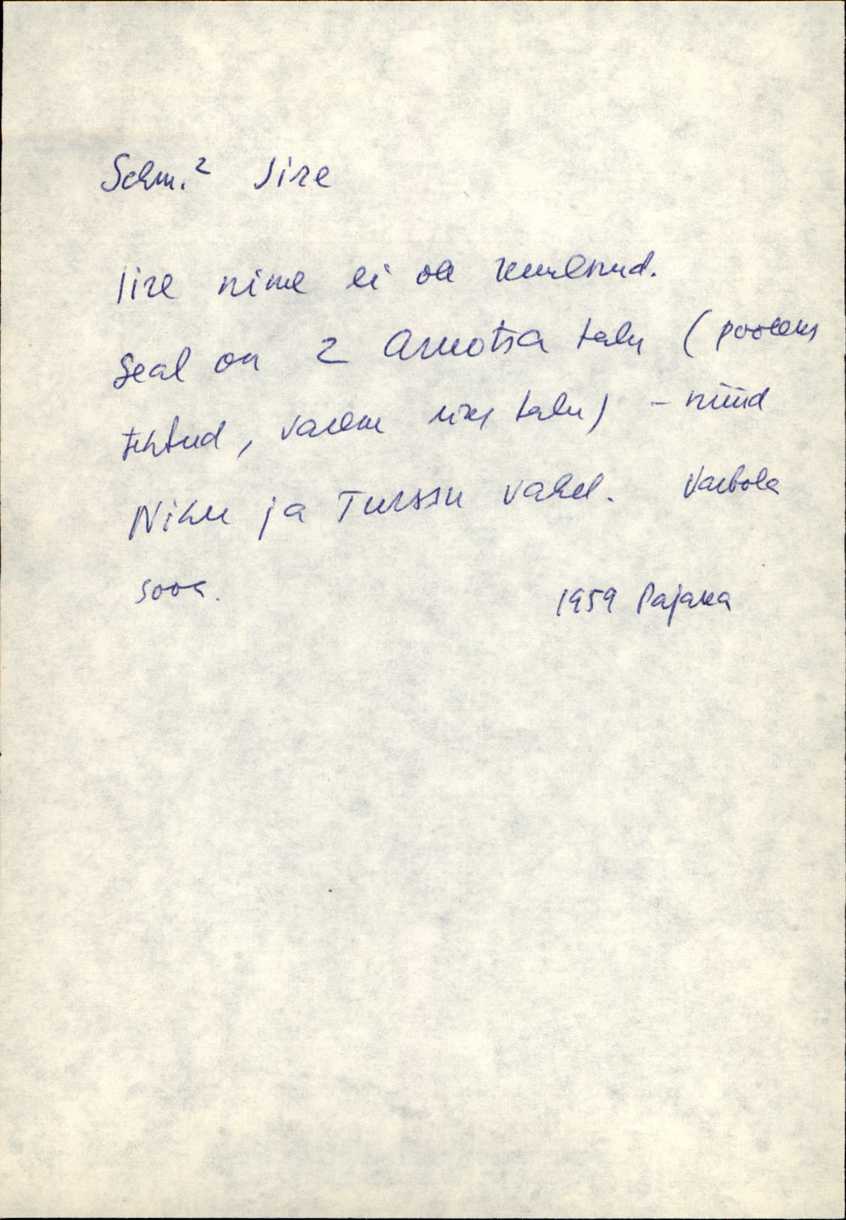 Schm.² Iire
Iire nime ei ole kuulnud.
Seal on 2 Aruotsa talu (pooleks
tehtud, varem üks talu) – nüüd
Nihu ja Turssu vahel. Varbola
soos.
1959 Pajaka